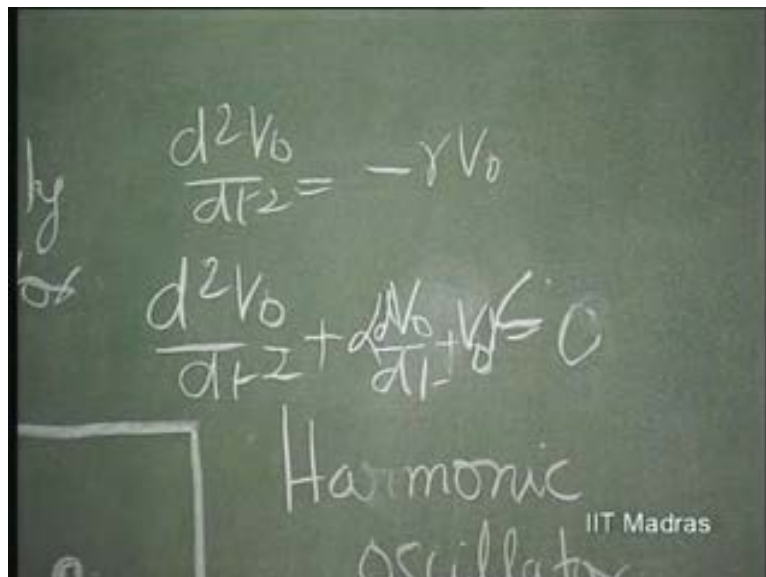 ly
d²V₀/dt² = -γV₀
tor
d²V₀/dt² + α dV₀/dt + V₀γ = 0
Harmonic
oscillator
IIT Madras